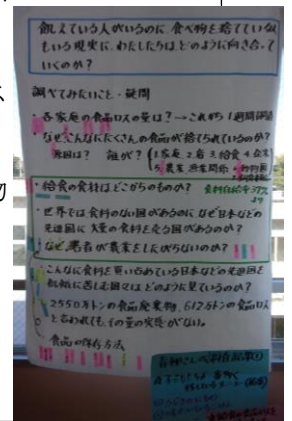 飢えている人がいるのに、食べ物を捨てている人
もいる現実に、わたしたちは、どのように向き合って
いくのか？
調べてみたいこと・疑問
・各家庭の食品ロスの量は？→これから1週間調査
・なぜ、こんなにたくさんの食品が捨てられているのか？
原因は？ 誰が？ 1家庭 2店 3給食 4企業
・給食の食材はどこからのものか？ 食料自給率37%
より
・世界では食料のない国があるのに、なぜ日本などの
先進国に大量の食料を売る国があるのか？
・なぜ、若者が農業をしたがらないのか？
・こんなに食料を買い占めている日本などの先進国を
飢餓に苦しむ国々はどのように見ているのか？
・2550万トンの食品廃棄物、612万トンの食品ロス
と言われても、その量の実感がない。
・食品の保存方法